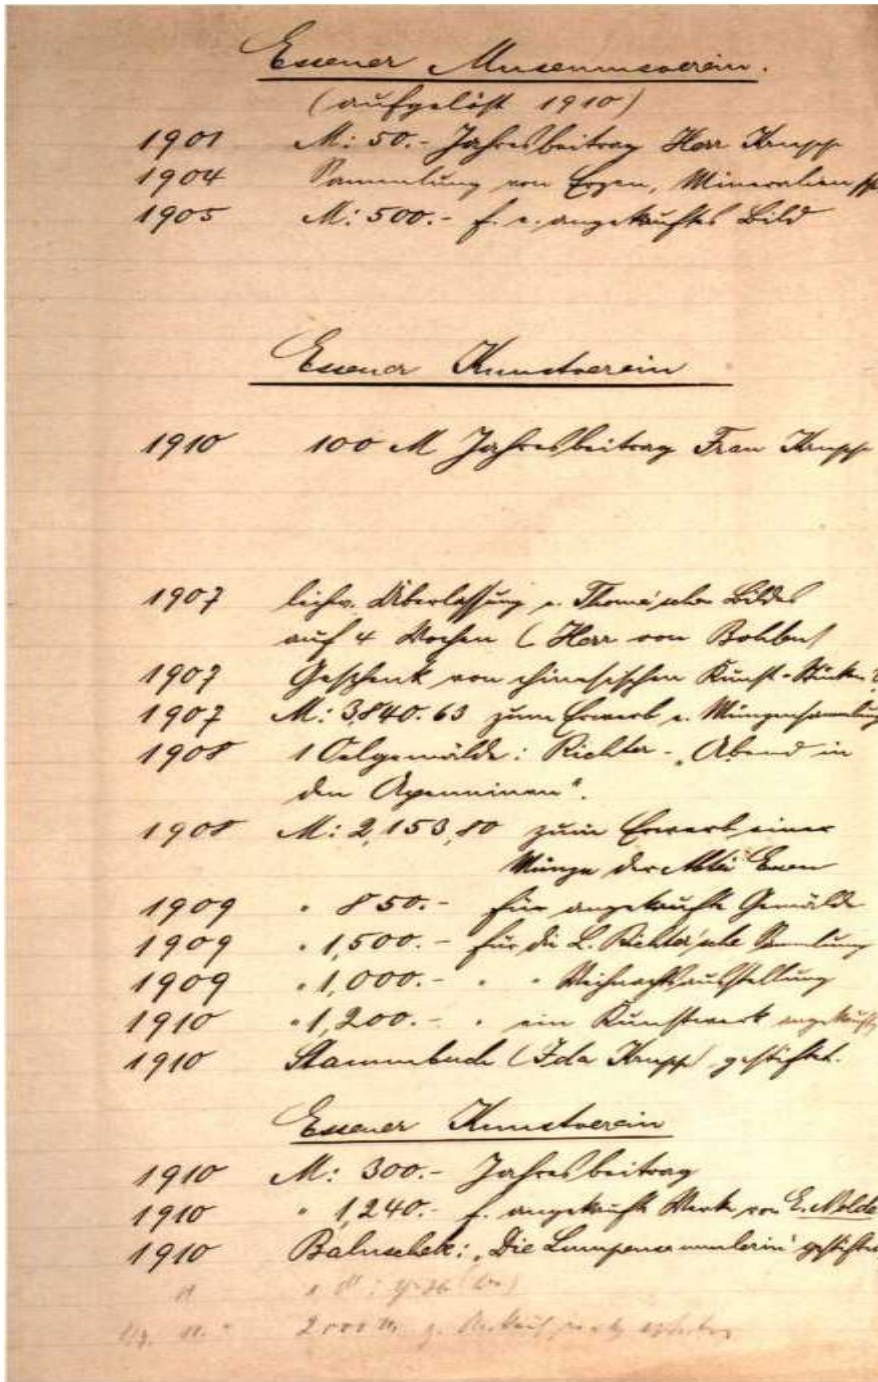 Essener Museumsverein.
(aufgelöst 1910)
1901 M: 50.- Jahresbeitrag Herr Krupp
1904 Sammlung von Erzen, Mineralien pp
1905 M: 500.- f. e. angekauftes Bild
Essener Kunstverein
1910 100 M Jahresbeitrag Frau Krupp
1907 leihw. Überlassung e. Thoma'schen Bildes
auf 4 Wochen (Herr von Bohlen)
1907 Geschenk von chinesischen Kunst-Stücken
1907 M: 3,840.63 zum Erwerb e. Münzensammlung
1908 1 Oelgemälde: Richter - „Abend in
den Apenninen".
1908 M: 2,153,80 zum Erwerb einer
Münze der Abtei Essen
1909 " 850.- für angekaufte Gemälde
1909 " 1,500.- für die L. Richter'sche Sammlung
1909 " 1,000.- " " Weihnachtsausstellung
1910 " 1,200.- " ein Kunstwerk angekauft
1910 Stammbuch (Ida Krupp) gestiftet.
Essener Kunstverein
1910 M: 300.- Jahresbeitrag
1910 " 1,240.- f. angekaufte Werke von E. Nolde
1910 Baluschek: „Die Lumpensammlerin" gestiftet
2000 M